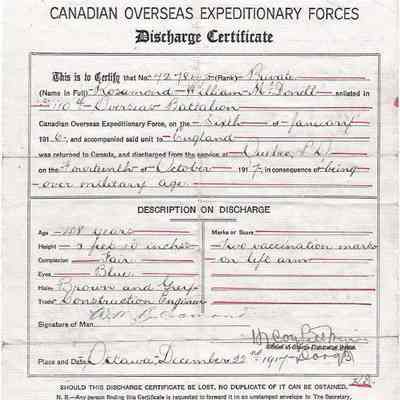 CANADIAN OVERSEAS EXPEDITIONARY FORCES
Discharge Certificate
This is to Certify that No. (Rank) Private
(Name in Full) Rosamond William McDonell enlisted in
Overseas Battalion
Canadian Overseas Expeditionary Force, on the Sixth of January
1916, and accompanied said unit to England
was returned to Canada, and discharged from the service at Quebec, P.Q.
on the Fourteenth of October 1917, in consequence of being
over military age.
DESCRIPTION ON DISCHARGE
Age years
Height feet 10 inches
Complexion Fair
Eyes Blue
Hair Brown and Grey
Trade Construction Engineer
Marks or Scars
Two vaccination marks
on left arm
Signature of Man
Place and Date Ottawa December 22nd 1917
SHOULD THIS DISCHARGE CERTIFICATE BE LOST, NO DUPLICATE OF IT CAN BE OBTAINED.
N. B.—Any person finding this Certificate is requested to forward it in an unstamped envelope to The Secretary,